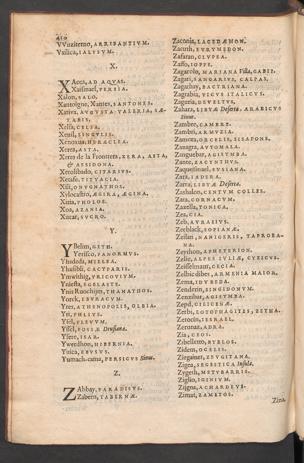 410
VVuzitemo, ARRIBANTIVM.
Vxilica, IALYSVM.
X.
XAces, AD AQVAS.
Xaifmael, PERSIA.
Xalon, SALO.
Xantoigne, Xantes, SANTONES.
Xativa, AVGVSTA VALERIA, SÆ-
TABIS.
Xelsa, CELSA.
Xenil, SINGVLIS.
Xenoxua, HERACLEA.
Xeres, ASTA.
Xeres de la Frontera, XERA, ASTA,
& ASSIDONA.
Xerolibado, CITARIVS.
Xexafo, TITYACIA.
Xili, ONVGNATHOS.
Xylocastro, ÆGIRA, ÆGINA.
Xista, PHOLOE.
Xoa, AZANIA.
Xucar, SVCRO.
Y.
YBelim, GETH.
Yerisso, PANORMVS.
Yhidoda, MISENA.
Yhusibli, CACTPARIS.
Yniesta, EGELASTE.
York, EBVRACVM.
Yres, ATHENOPOLIS, OLBIA.
Yssel, FLEVVM.
Yssel, FOSSA Drusiana.
Ysere, ISAR.
Ywerdhon, HIBERNIA.
Ytica, EBVSVS.
Yumach-cama, PERSICVS Sinus.
Z.
ZAbbay, PARADISVS.
Zabern, TABERNÆ.
Zaconia, LACEDÆMON.
Zacuth, EVRYMEDON.
Zafaran, CLVPEA.
Zaffo, IOPPE.
Zagarolo, MARIANA Fossa, GABII.
Zagatai, SANGARIVS, CALPAS.
Zagathay, BACTRIANA.
Zagrabia, VICVS ITALICVS.
Zaguria, DEVELTVS.
Zahara, LIBYÆ Deserta. ARABICVS
Sinus.
Zambre, CAMBRT.
Zambri, ARMVZIA.
Zamora, OCELLIS, SISAPONE.
Zanagra, AVTOMALA.
Zanguebar, AGISYMBA.
Zante, ZACYNTHVS.
Zaqueismel, SVSIANA.
Zara, IADERA.
Zarra, LIBYÆ Deserta.
Zashalon, CENTVM COLLES.
Zata, CORNACVM.
Zauella, TONICA.
Zea, CIA.
Zeb, AVRASIVS.
Zeeblack, SOPIANÆ.
Zeilan, NANIGERIS, TAPROBA-
NA.
Zeyrhon, APHETERION.
Zelic, ALPES IVLIÆ, CYZICVS.
Zeiselmaur, CECIA.
Zelbicdibes, ARMENIA MAIOR.
Zema, IDVBEDA.
Zenderin, SINGEDONVM.
Zenzibar, AGISYMBA.
Zepd, CILICIA.
Zerbi, LOTOPHAGITIS, ZETHA.
Zerocth, ISRAEL.
Zeromaz, ADRA.
Zia, CEOS.
Zibellemo, BYBLOS.
Zidem, OCELIS.
Ziegainer, ZEVGITANA.
Zigea, SEGESTICA Insula.
Zygeth, METVBARRIS.
Ziglio, IGINIVM.
Zijgna, ACHARDEVS.
Zimat, ZAMETOS.
Zina.